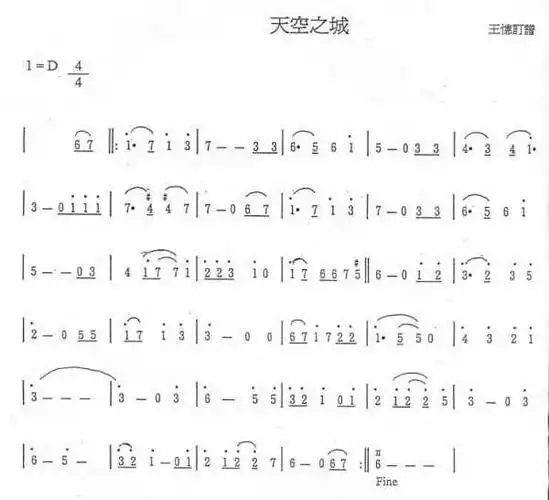 天空之城
王憶訂譜
1=D 4/4
| 6 7 ‖: 1• 7 1 3 | 7 – – 3 3 | 6• 5 6 1 | 5 – 0 3 3 | 4• 3 4 1• |
| 3 – 0 1 1 1 | 7• #4 #4 7 | 7 – 0 6 7 | 1• 7 1 3 | 7 – 0 3 3 | 6• 5 6 1 |
| 5 – – 0 3 | 4 1 7 7 1 | 2 2 3 1 0 | 1 7 6 6 7 #5 ‖ 6 – 0 1 2 | 3• 2 3 5 |
| 2 – 0 5 5 | 1 7 1 3 | 3 – 0 0 | 6 7 1 7 2 2 | 1• 5 5 0 | 4 3 2 1 |
| 3 – – – | 3 – 0 3 | 6 – 5 5 | 3 2 1 0 1 | 2 1 2 2 5 | 3 – 0 3 |
| 6 – 5 – | 3 2 1 – 0 1 | 2 1 2 2 7 | 6 – 0 6 7 :‖ 6 – – – |
Fine